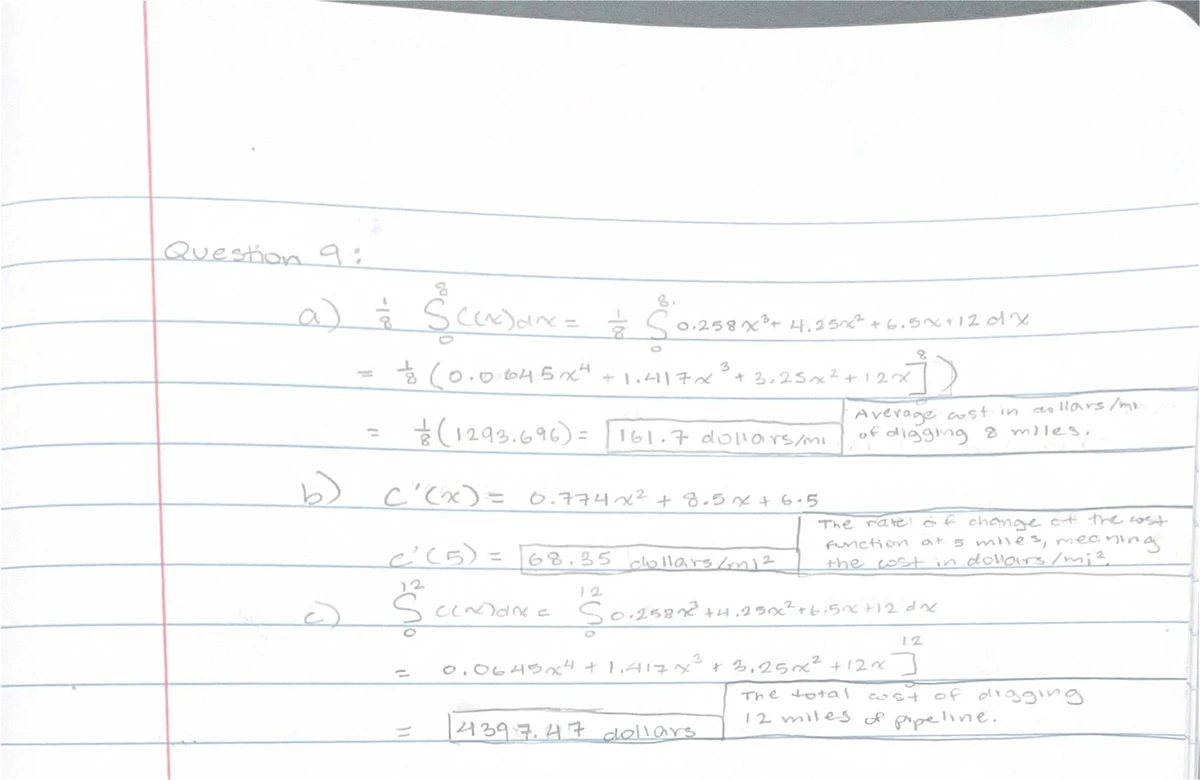 Question 9:
a) 1/8 ∫₀⁸ C(x)dx = 1/8 ∫₀⁸ 0.258x³ + 4.25x² + 6.5x + 12 dx
= 1/8 (0.0645x⁴ + 1.417x³ + 3.25x² + 12x]₀⁸)
= 1/8 (1293.696) = 161.7 dollars/mi
Average cost in dollars/mi
of digging 8 miles.
b) C'(x) = 0.774x² + 8.5x + 6.5
c'(5) = 68.35 dollars/mi²
The rate of change of the cost
function at 5 miles, meaning
the cost in dollars/mi².
c) ∫₀¹² c(x)dx = ∫₀¹² 0.258x³ + 4.25x² + 6.5x + 12 dx
= 0.0645x⁴ + 1.417x³ + 3.25x² + 12x]₀¹²
= 4397.47 dollars
The total cost of digging
12 miles of pipeline.